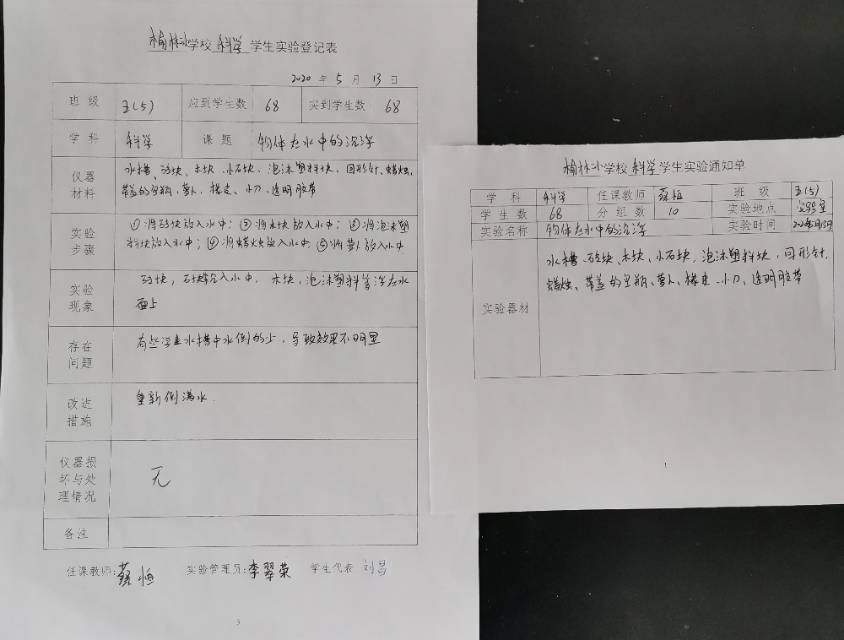 榆林小学校 科学 学生实验登记表
2020 年 5 月 13 日
班 级 三(5) 应到学生数 68 实到学生数 68
学 科 科学 课 题 物体在水中的沉浮
仪器材料
水槽、砖块、木块、小石块、泡沫塑料块、回形针、蜡烛、
带盖的空瓶、萝卜、橡皮、小刀、透明胶带
实验步骤
①将砖块放入水中；②将木块放入水中；③将泡沫塑
料块放入水中；④将蜡烛放入水中⑤将萝卜放入水中
实验现象
砖块，石块沉入水中，木块，泡沫塑料等浮在水
面上
存在问题
有些学生水槽中水倒的少，导致效果不明显
改进措施
重新倒满水
仪器损坏与处理情况
无
备注
任课教师: 恒 实验管理员: 李翠荣 学生代表 刘昌
3
榆林小学校 科学 学生实验通知单
学 科 科学 任课教师 恒 班 级 三(5)
学 生 数 68 分 组 数 10 实验地点 实验室
实验名称 物体在水中的沉浮 实验时间
实验器材
水槽、砖块、木块、小石块、泡沫塑料块、回形针、
蜡烛、带盖的空瓶、萝卜、橡皮、小刀、透明胶带
1